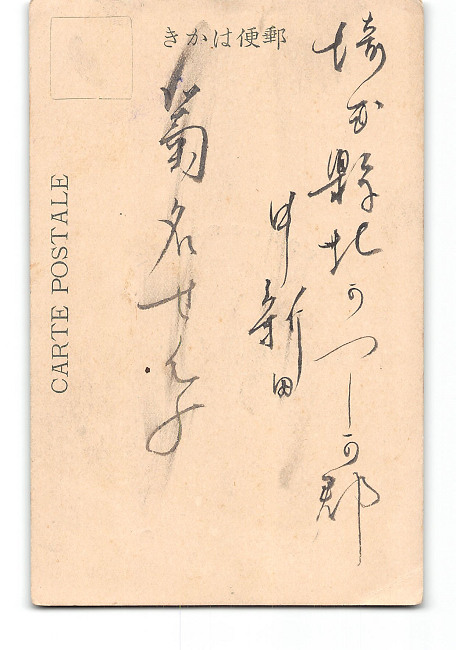 きかはに便郵
埼玉縣北かつしか郡
中新田
菊名せん子
CARTE POSTALE